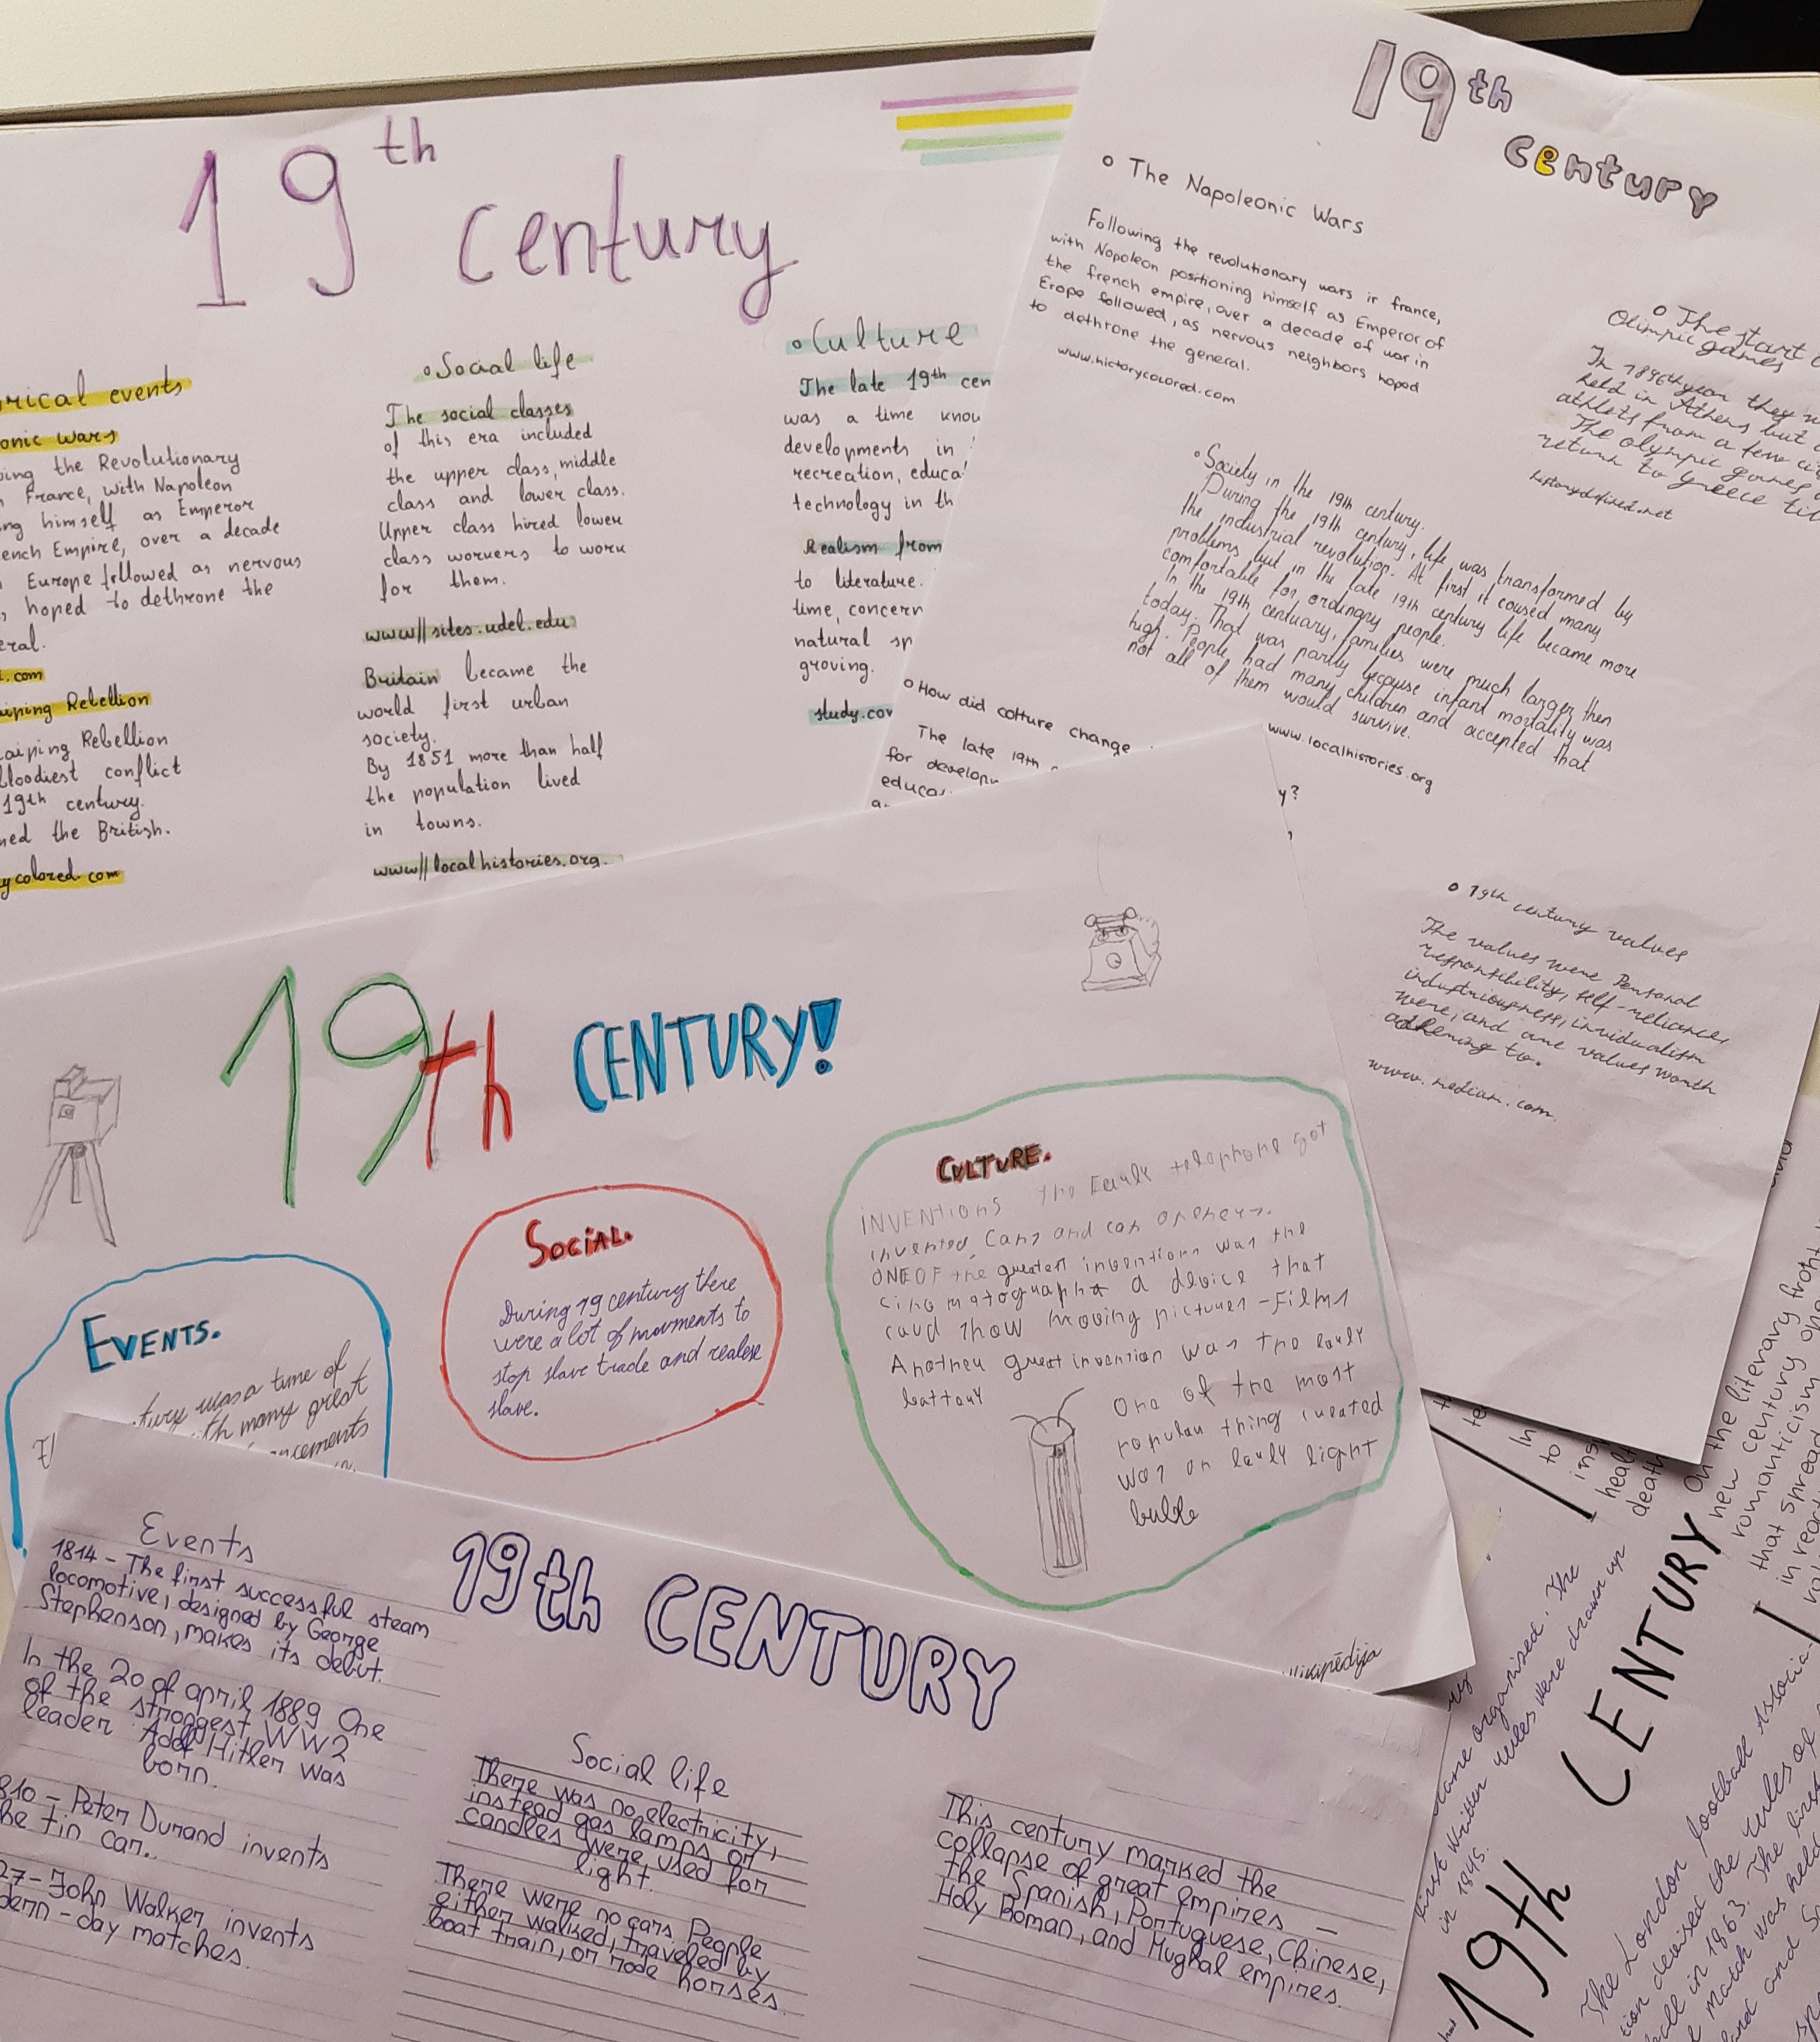 19th
century
rical events
onic wars
ing the Revolutionary
France, with Napoleon
ng himself as Emperor
ench Empire, over a decade
Europe followed as nervous
, hoped to dethrone the
eral.
i.com
aiping Rebellion
aiping Rebellion
bloodiest conflict
19th century.
ned the British.
ycolored.com
• Social life
The social classes
of this era included
the upper class, middle
class and lower class.
Upper class hired lower
class workers to work
for them.
www//sites.udel.edu
Britain became the
world first urban
society.
By 1851 more than half
the population lived
in towns.
www//localhistories.org.
• Culture
The late 19th cen
was a time know
developments in
recreation, educa
technology in th
Realism from
to literature.
time, concern
natural sp
groving.
study.co
19th
century
• The Napoleonic Wars
Following the revolutionary wars in france,
with Nopoleon positioning himself as Emperor of
the french empire, over a decade of war in
Erope followed, as nervous neighbors hoped
to dethrone the general.
www.hictorycolored.com
• The start
Olimpic games
In 1896th year they w
held in Athens but
athlets from a few
The olympic games
return to Greece til
historydefined.net
• Society in the 19th century.
During the 19th century, life was transformed by
the industrial revolution. At first it coused many
problems but in the late 19th century life became more
comfortable for ordingary people.
In the 19th centuary, families were much larger then
today. That was partly because infant mortality was
high. People had many children and accepted that
not all of them would survive.
www.localhistories.org
• How did colture change
y?
The late 19th
for develop
educa
• 19th century values
The values were Personal
responsibility, self-reliance,
industriousness, inviduaolism
were, and are values worth
adhering to.
www.medium.com
19th CENTURY!
EVENTS.
tury was a time of
with many great
ancements
SOCIAL.
During 19 century there
were a lot of movments to
stop slave trade and realese
slave.
CULTURE.
INVENTIONS The Early telephone got
invented, Cans and can openers.
ONE OF the greatest inventions was the
cinematograph a device that
caud show moving pictures - Films
Another great invention was the early
battary
One of the most
popular thing created
was an early light
bulbe
Wikipēdija
19th CENTURY
Events
1814 - The first successful steam
locomotive, designed by George
Stephenson, makes its debut.
In the 20 of april 1889 One
of the strongest WW2
leader Adolf Hitler was
born.
810 - Peter Durand invents
he tin can..
27 - John Walker invents
dern-day matches.
Social life
There was no electricity,
instead gas lamps or
candles were used for
light.
There were no cars. People
either walked, traveled by
boat train, or rode horses.
This century marked the
collapse of great empires —
the Spanish, Portuguese, Chinese,
Holy Roman, and Mughal empires.
19th CENTURY
On the literary front
new century
romanticism
that spread
In
to
ins
healt
death
came organised. The
first written rules were drawn up
in 1845.
The London football Associa
tion devised the rules of
ball in 1863. The first
match was held